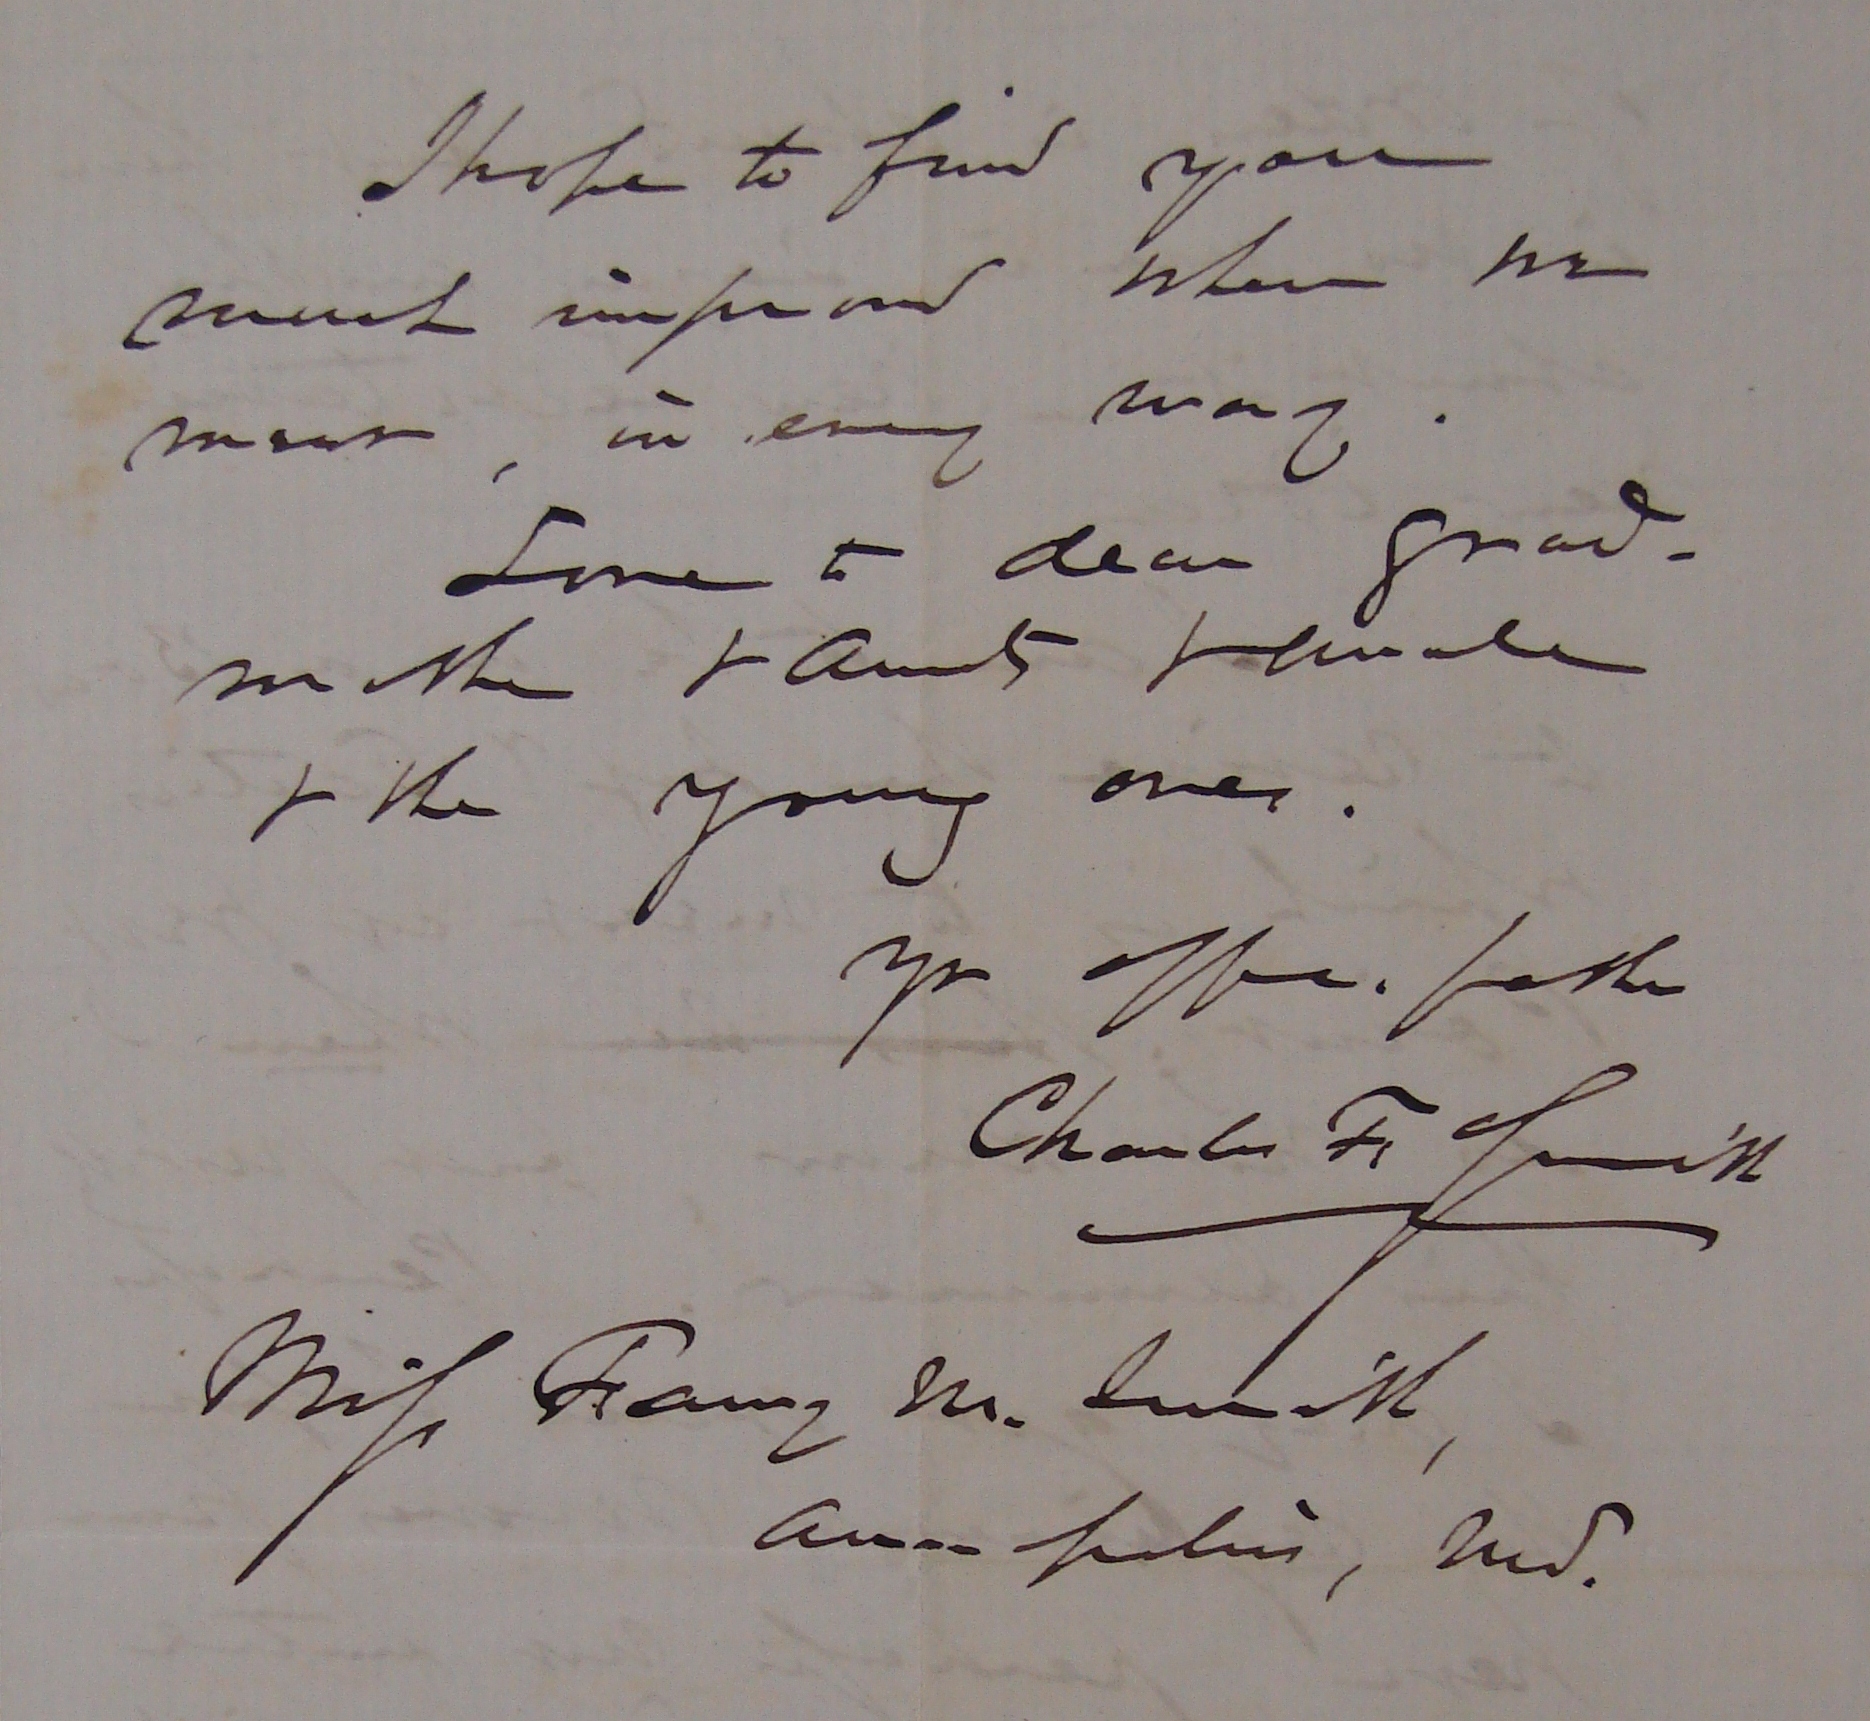 I hope to find you
much improved when we
meet, in every way.
Love to dear grand-
mother & Aunts & Uncle
& the young ones.
Yr affec. father
Charles F. Smith
Miss Fanny M. Smith,
Annapolis, Md.